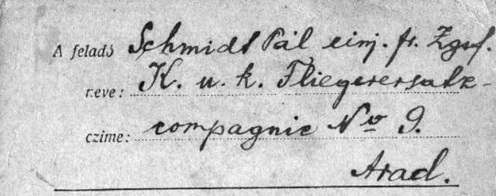 A feladó Schmidt Pál einj. fr. Zgsf.
neve: K. u. k. Fliegerersatz-
czime: compagnie No 9.
Arad.